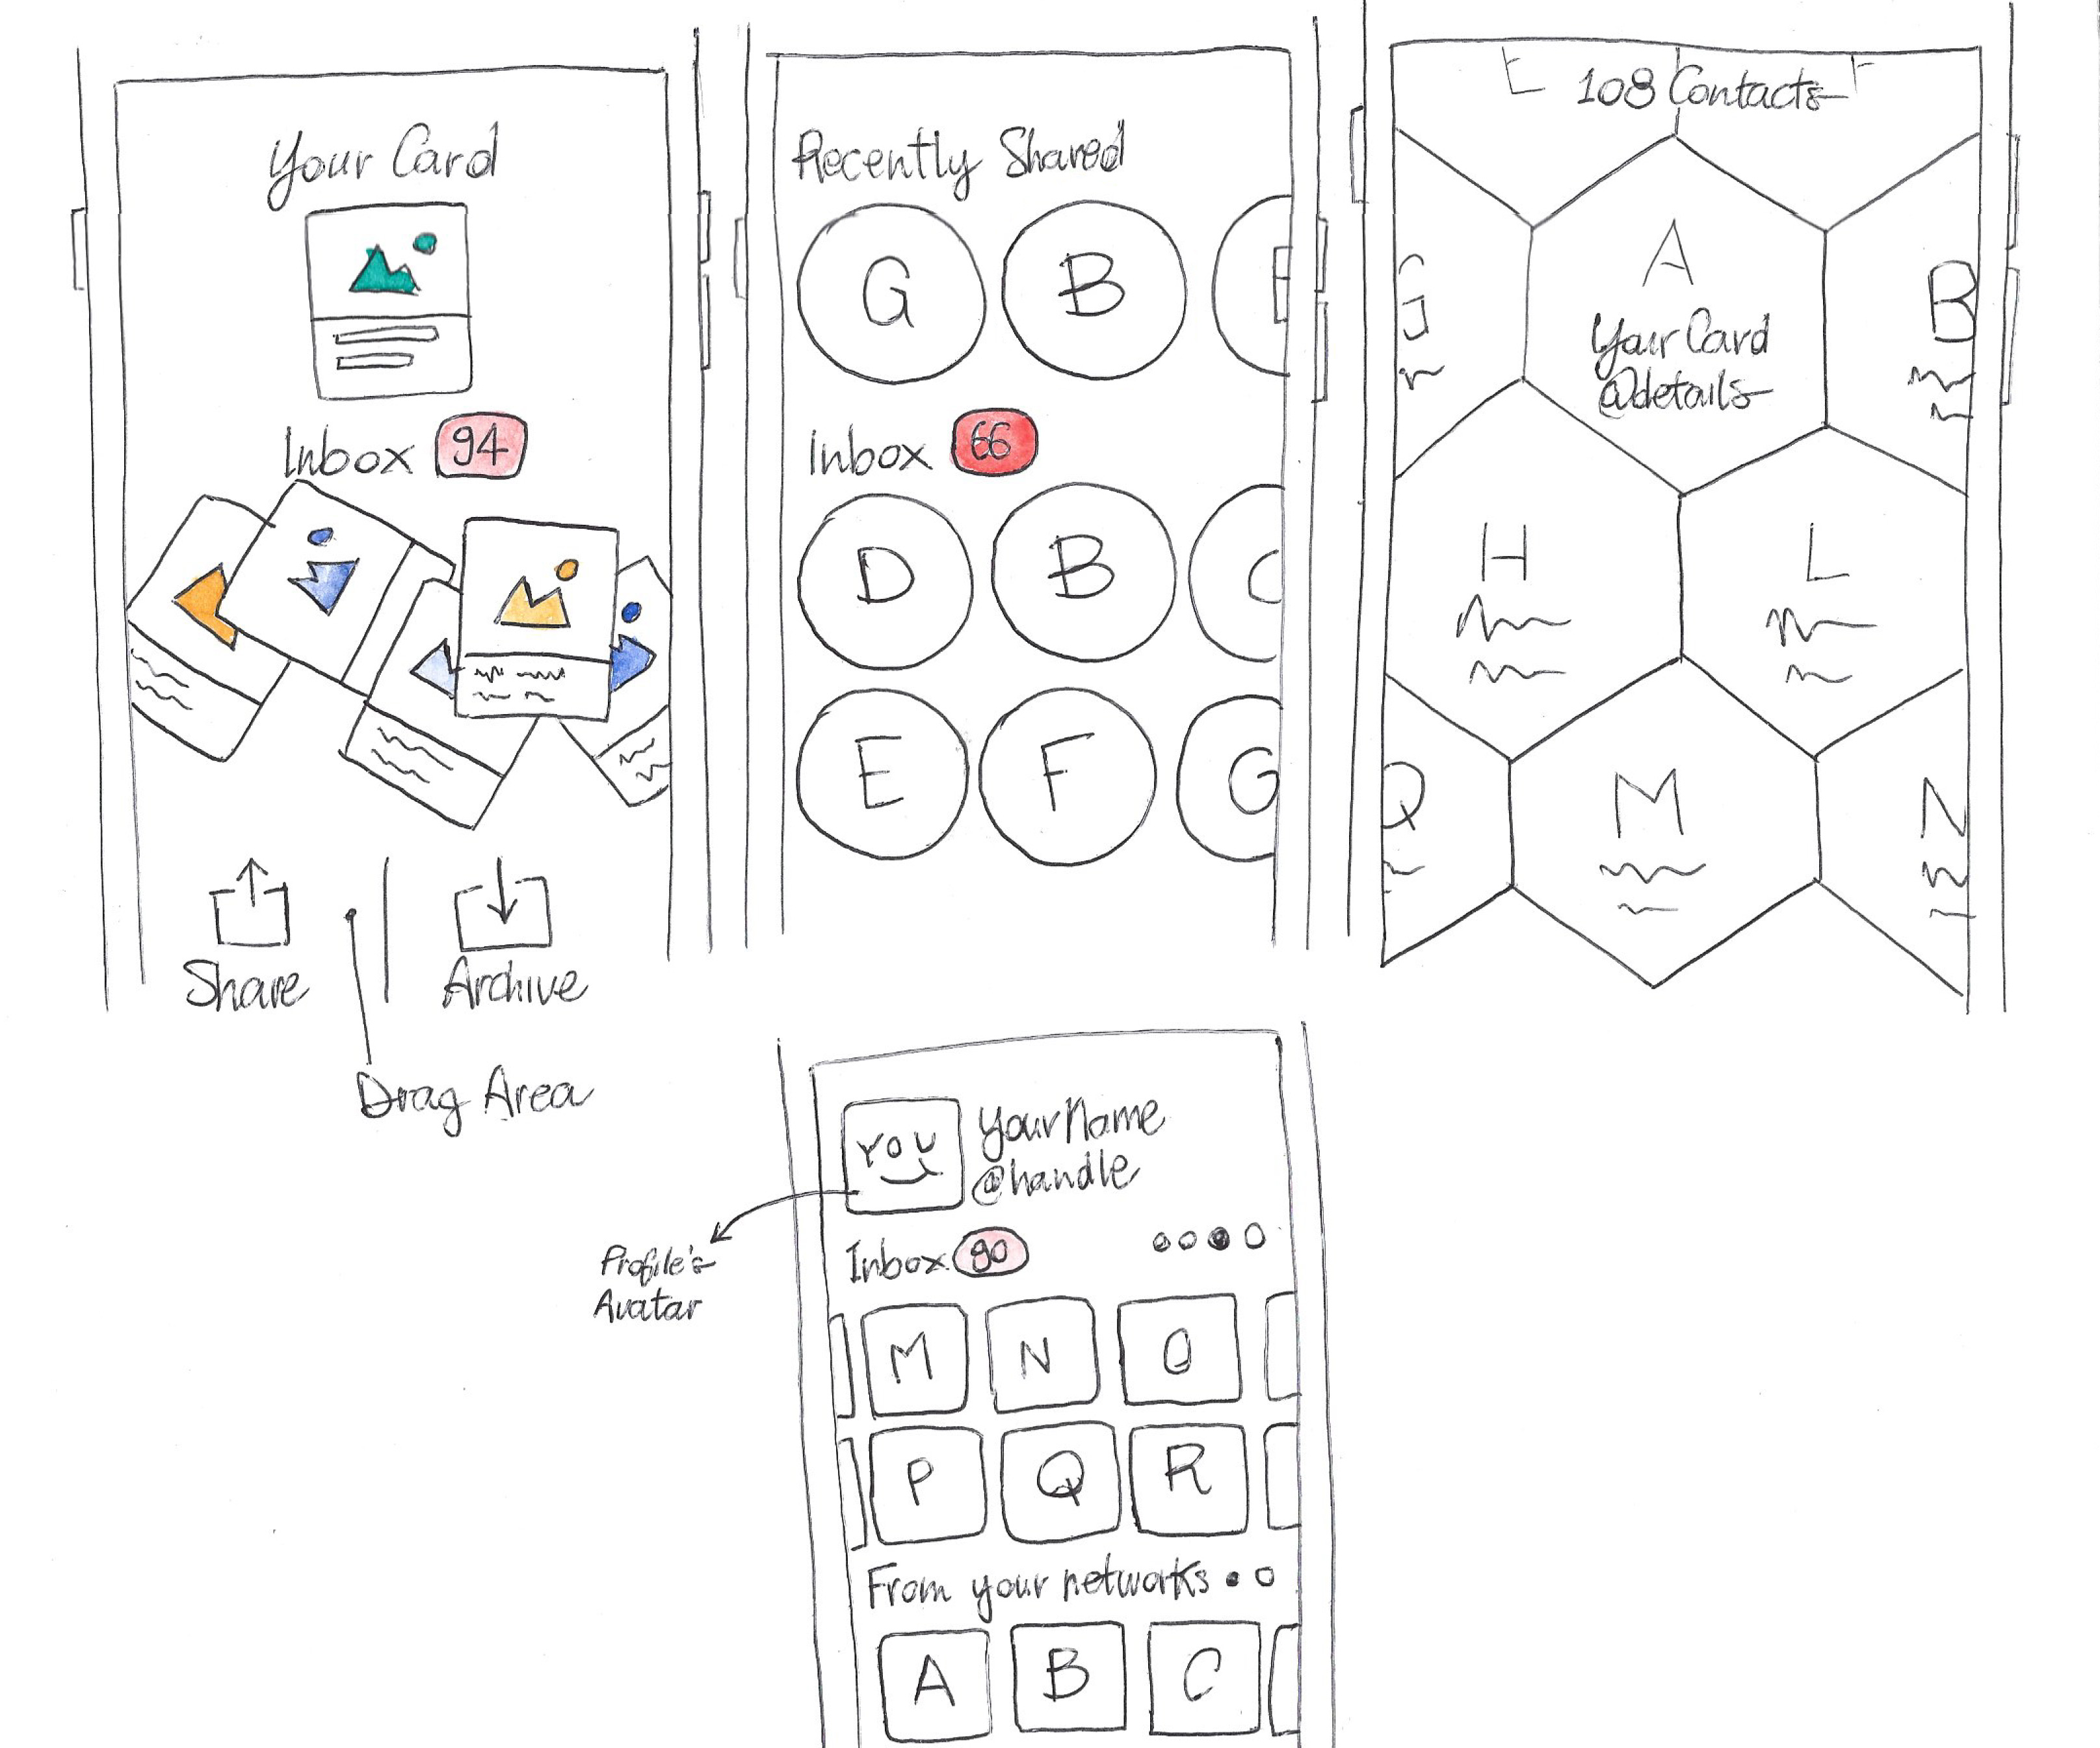 Your Card
Inbox 94
Share
Archive
Drag Area
Recently Shared
G
B
Inbox 66
D
B
C
E
F
G
108 Contacts
A
Your Card
@details
B
H
L
Q
M
N
YOU
yourName
@handle
Profile's
Avatar
Inbox 90
M
N
O
P
Q
R
From your networks
A
B
C